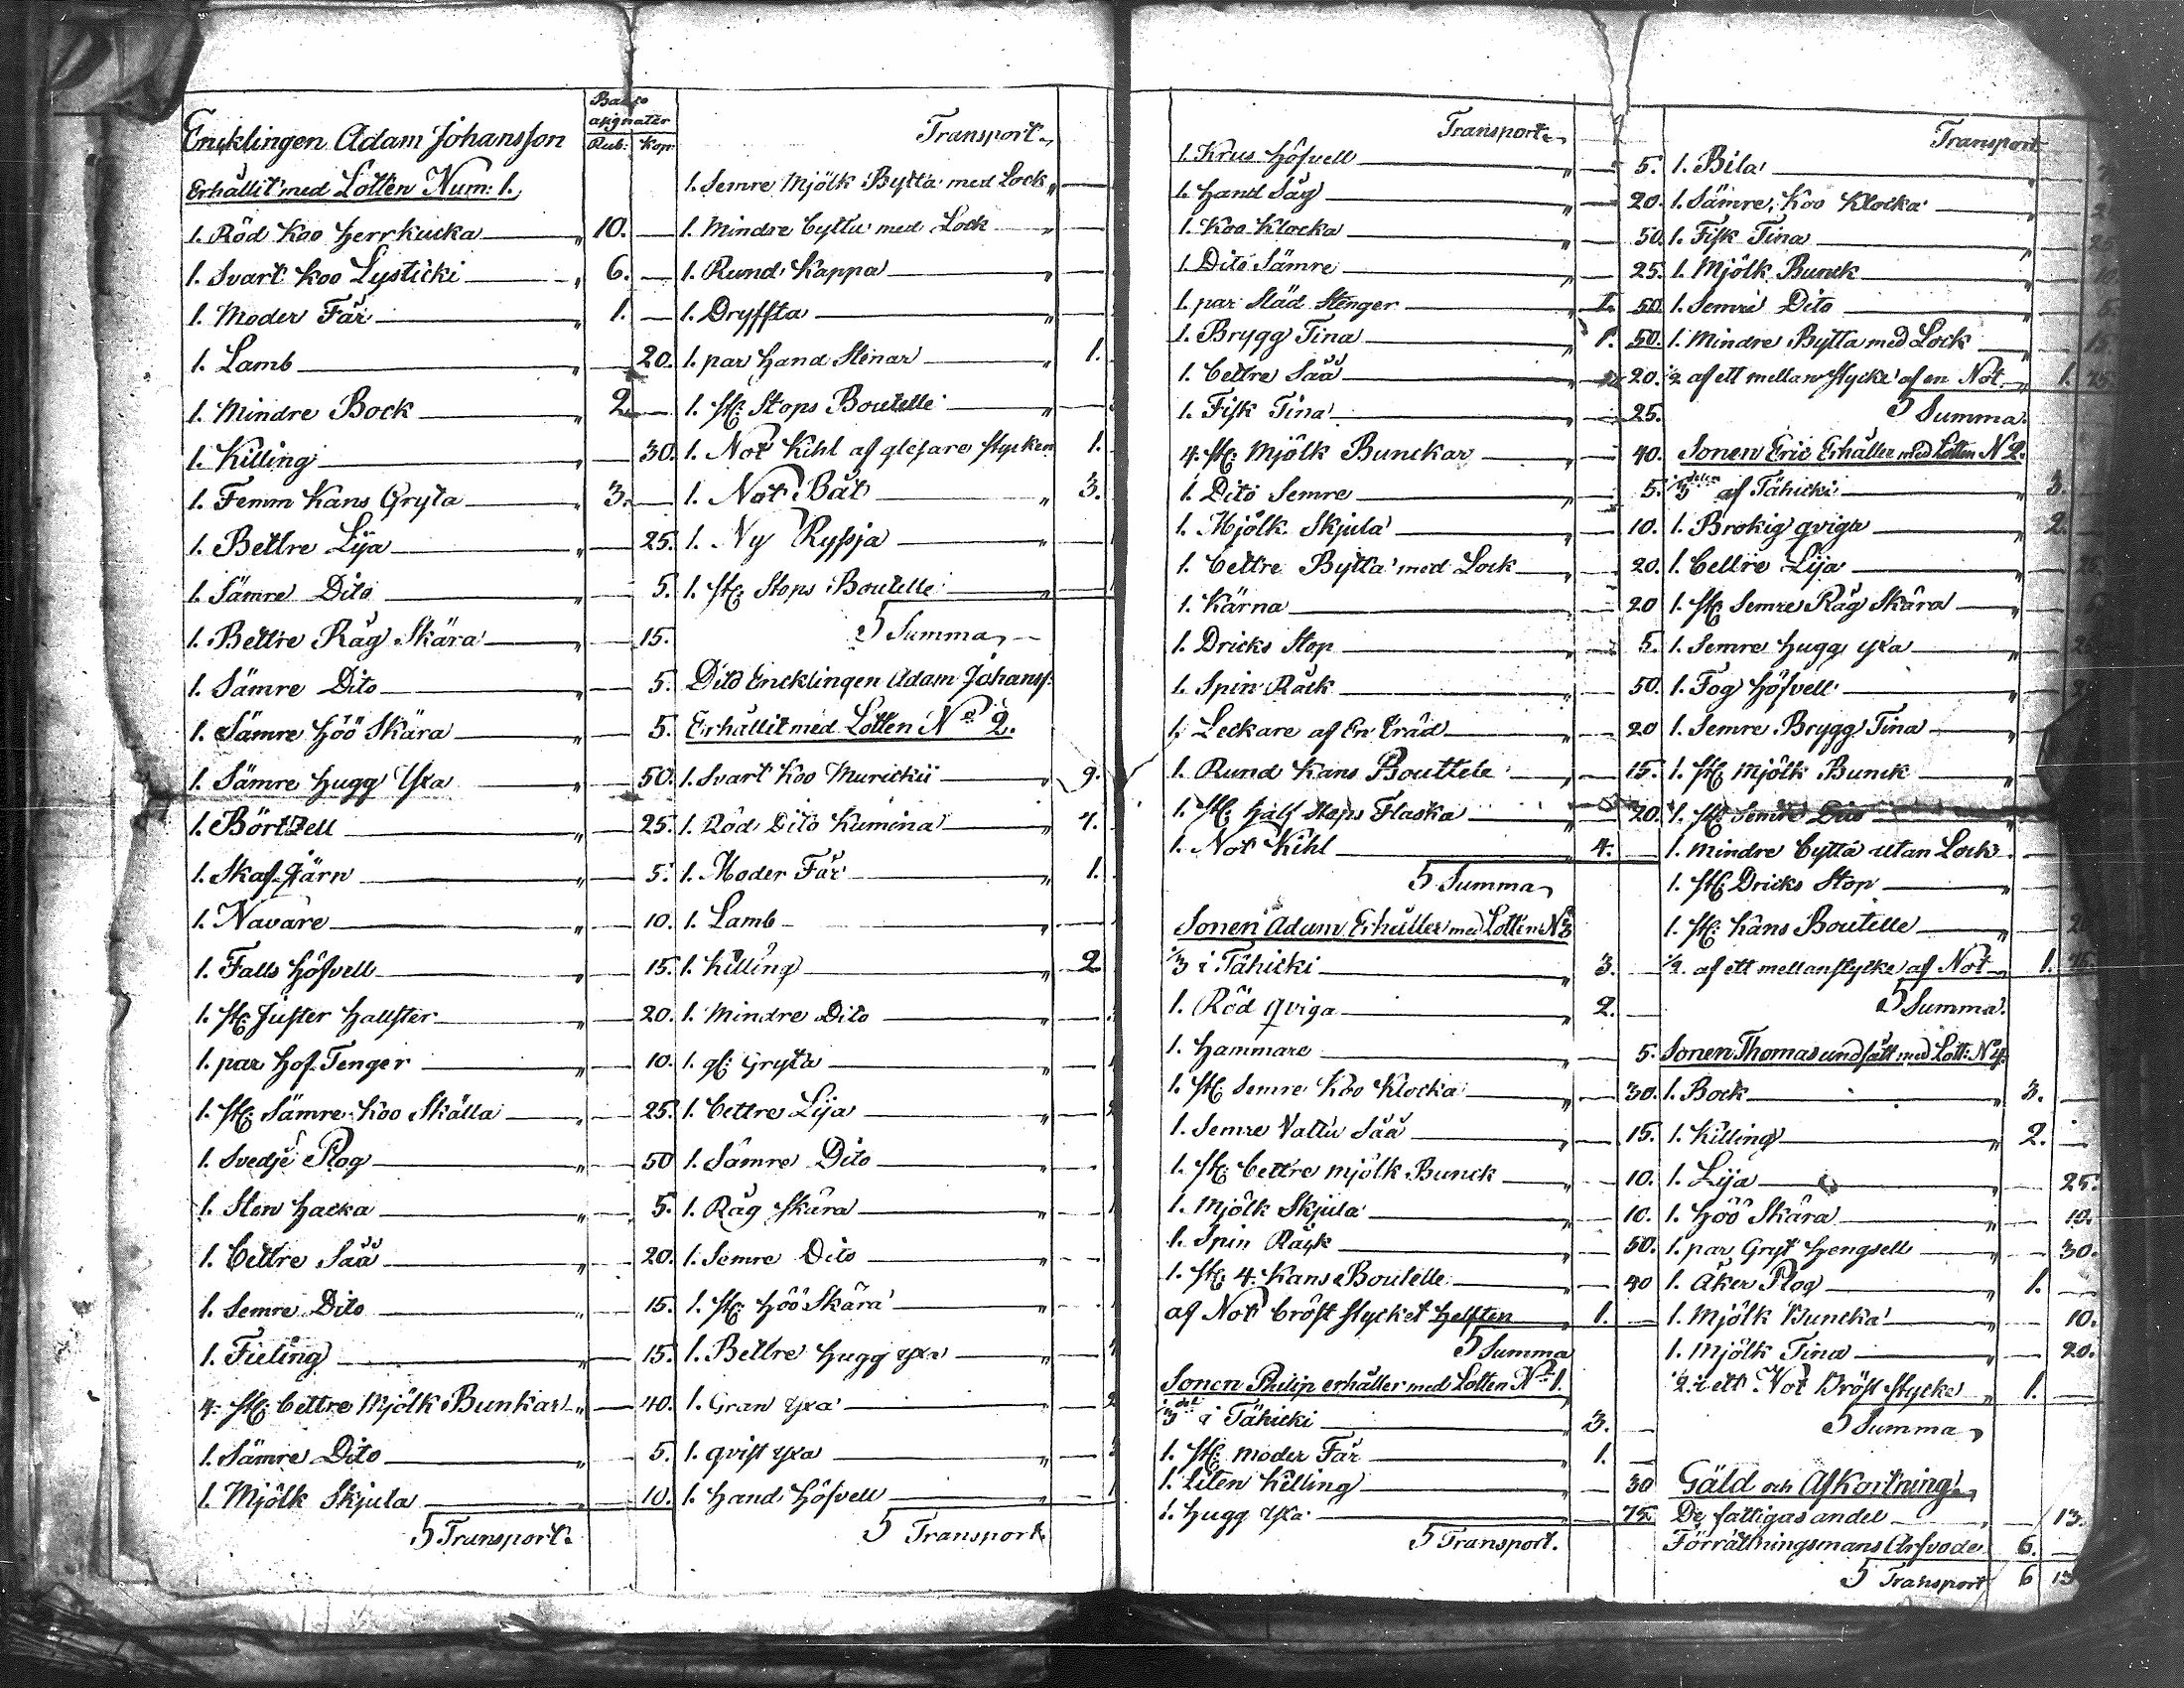 Banco
assignater
Rub: Kop:
Encklingen Adam Johansson
Erhållit med Lotten Num: 1.
1. Röd Koo Herrkucka " 10. —
1. Svart Koo Lysticki " 6. —
1. Moder Får " 1. —
1. Lamb " — 20.
1. Mindre Bock " 2. —
1. Killing " — 30.
1. Femm Kans Gryta " 3. —
1. Bettre Lija " — 25.
1. Sämre Dito " — 5.
1. Bettre Råg Skära " — 15.
1. Sämre Dito " — 5.
1. Sämre Höö Skära " — 5.
1. Sämre Hugg Yxa " — 50.
1. Börtzell " — 25.
1. Skaf Järn " — 5.
1. Navare " — 10.
1. Falls Höfvell " — 15.
1. st: Juster Hallster " — 20.
1. par Hof Tenger " — 10.
1. st: Sämre Koo Skälla " — 25.
1. Svedje Plog " — 50
1. Sten Hacka " — 5.
1. bettre Såå " — 20.
1. Semre Dito " — 15.
1. Fieling " — 15.
4. st: bettre Mjölk Bunkar " — 40.
1. Sämre Dito " — 5.
1. Mjölk Skjula " — 10.
S Transport.
Transport
1. Semre Mjölk Bytta med Lock " —
1. Mindre bytta med Lock " —
1. Rund Kappa " —
1. Dryffta " —
1. par Hand Stenar " 1.
1. st: Stops Boutelle " —
1. Not Kihl af glesare stycken 1.
1. Not Båt " 3.
1. Ny Ryssja " —
1. st: Stops Boutelle " —
S Summa
Dito Encklingen Adam Johanss:
Erhållit med Lotten No 2.
1. Svart Koo Murickii " 9.
1. Röd Dito Kumina " 7.
1. Moder Får " 1.
1. Lamb " —
1. Killing " 2
1. Mindre Dito " —
1. gl: Gryta " —
1. bettre Lija " —
1. Sämre Dito " —
1. Råg skära " —
1. Semre Dito " —
1. st: Höö Skära " —
1. Bettre Hugg yxa " —
1. Gran yxa " —
1. qvist yxa " —
1. Hand Höfvell " —
S Transport
Transport
1. Krus Höfvell " — 5.
1. Hand Såg " — 20.
1. Koo Klocka " — 50.
1. Dito Sämre " — 25.
1. par Städ Stenger " 1. 50.
1. Brygg Tina " 1. 50.
1. bettre Såå " — 20.
1. Fisk Tina " — 25.
4. st: Mjölk Bunckar " — 40.
1. Dito Semre " — 5.
1. Mjölk Skjula " — 10.
1. bettre Bytta med Lock " — 20.
1. Kärna " — 20
1. Dricks Stop " — 5.
1. Spin Råck " — 50.
1. Leckare af En tråd " — 20
1. Rund Kans Bouttele " — 15.
1. st: half Stops Flaska " — 20.
1. Not Kihl " 4. —
S Summa
Sonen Adam Erhåller med Lotten No 3
1/3 i Tähicki " 3. —
1. Röd qviga " 2. —
1. Hammare " — 5.
1. st: Semre Koo Klocka " — 30.
1. Semre Vattu Såå " — 15.
1. st: bettre mjölk Bunck " — 10.
1. Mjölk Skjula " — 10.
1. Spin Råck " — 50.
1. st: 4. Kans Boutelle " — 40
af Not bröst stycket Helften " 1. —
S Summa
Sonen Philip erhåller med Lotten No 1.
1/3 del i Tähicki " 3. —
1. st: moder Får " 1. —
1. Liten Killing " — 30
1. Hugg yxa " — 75.
S Transport.
Transport
1. Bila "
1. Sämre Koo Klocka "
1. Fisk Tina " — 25
1. Mjölk Bunck " — 10
1. Semre Dito " — 5.
1. Mindre Bytta med Lock — 15.
1/2 af ett mellan stycke af en Not " 1. 75.
S Summa.
Sonen Eric Erhåller med Lotten N 2.
1/3 delen af Tähicki " 3.
1. Brokig qviga " 2.
1. bettre Lija " — 25
1. st: Semre Råg Skära "
1. Semre Hugg yxa "
1. Fog Höfvell "
1. Semre Brygg Tina "
1. st: Mjölk Bunck "
1. st: Semre Dito "
1. Mindre bytta utan Lock
1. st: Dricks Stop "
1. st: Kans Boutelle "
1/2 af ett mellanstycke af Not " 1. 75.
S Summa.
Sonen Thomas undfått med Lott: N 4.
1. Bock " 3. —
1. Killing " 2. —
1. Lija " — 25.
1. Höö Skära " — 10.
1. par Gryt Hengsell " — 30.
1. Åker Plog " 1. —
1. Mjölk Buncka " — 10.
1. Mjölk Tina " — 20.
1/2 i ett Not Bröst stycke " 1. —
S Summa
Gäld och Afkortning
De fattigas andel " — 13.
Förrättningsmans Arfvode 6. —
S Transport 6 13